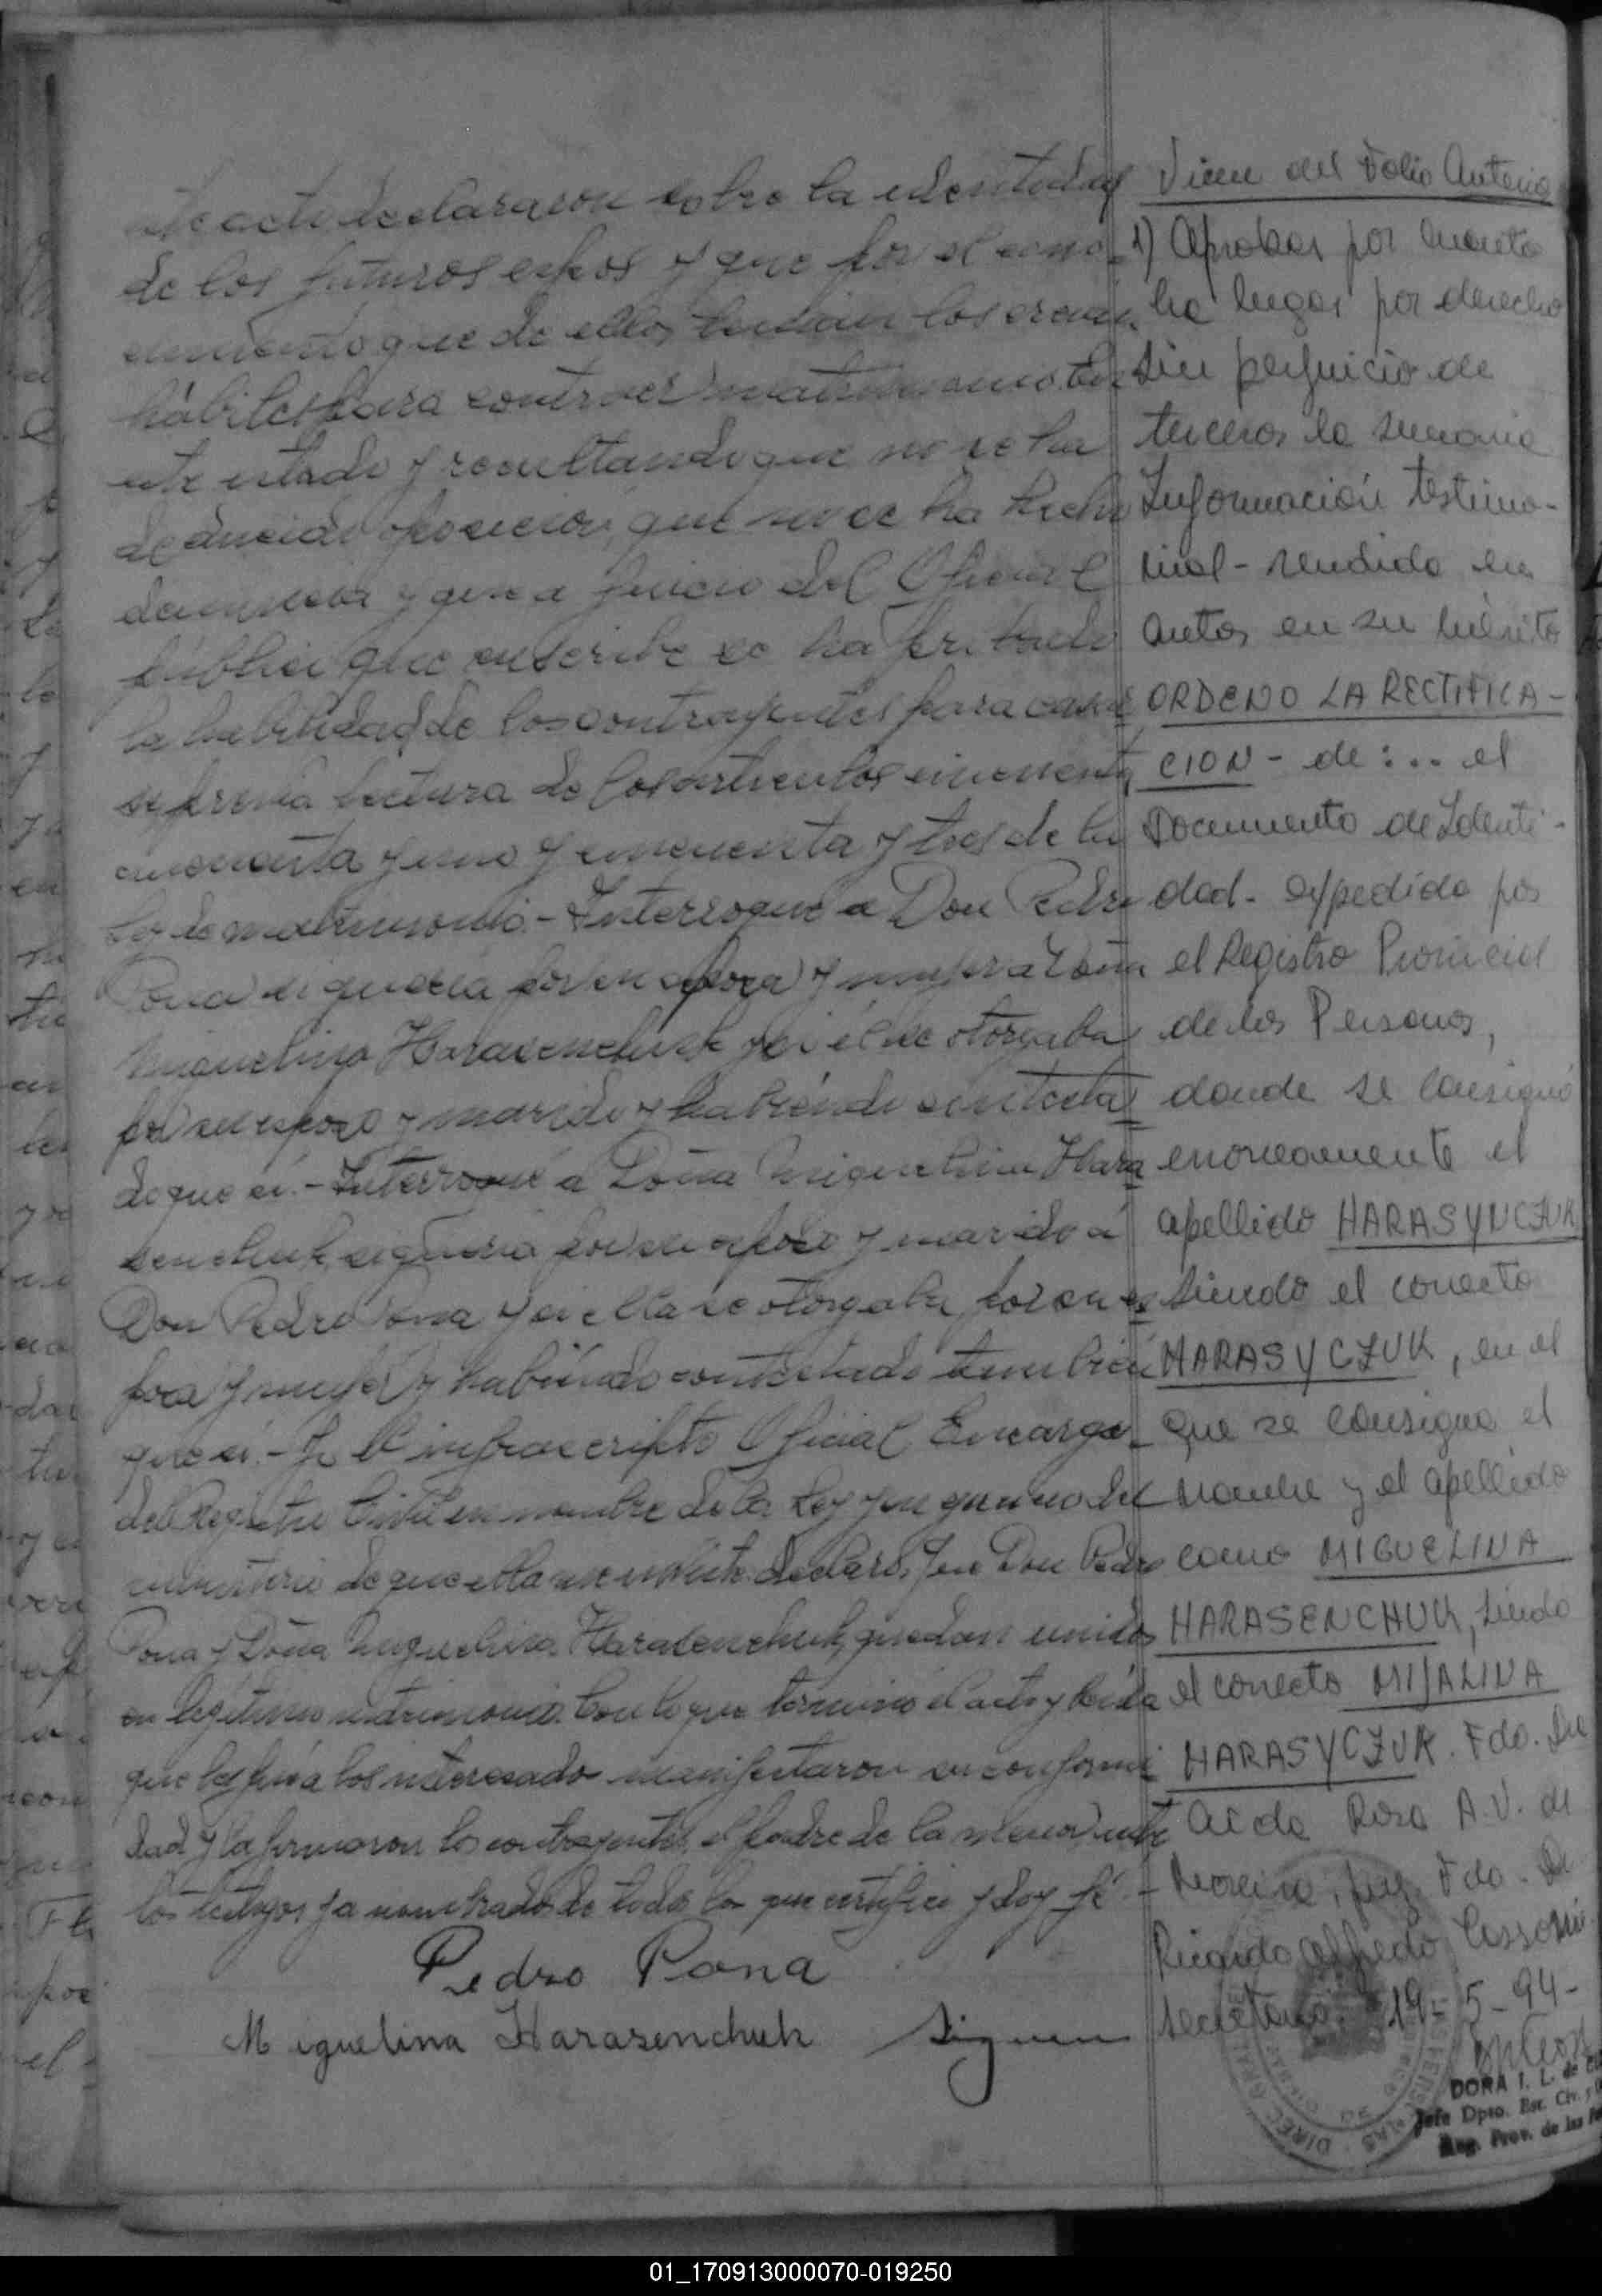 este acto declararon sobre la identidad
de los futuros esposos y que por el cono-
cimiento que de ellos tenían los creían
hábiles para contraer matrimonio. En
este estado y resultando que no se ha
deducido oposición, que no se ha hecho
denuncia y que a juicio del Oficial
público que suscribe se ha probado
la habilidad de los contrayentes para casarse
se previa lectura de los artículos cincuenta,
cincuenta y uno y cincuenta y tres de la
Ley de matrimonio.- Interrogué a Don Pedro
Pona si quería por su esposa y mujer a Doña
Miguelina Harasenchuk y si él se otorgaba
por su esposo y marido y habiendo contesta
do que sí.- Interrogué a Doña Miguelina Hara
senchuk, si quería por su esposo y marido á
Don Pedro Pona y si ella se otorgaba por su es
posa y mujer y habiendo contestado también
que sí.- Yo el infrascripto Oficial Encarga-
del Registro Civil en nombre de la Ley y en
ministerio de que ella me inviste declaro, que Don Pedro
Pona y Doña Miguelina Harasenchuk, quedan unidos
en legítimo matrimonio. Con lo que terminó el acto y leída
que les fué a los interesados manifestaron su conformi
dad y la firmaron los contrayentes, el padre de la menor, ante
los testigos ya nombrados de todo lo que certifico y doy fé.-
Pedro Pona
Miguelina Harasenchuk Siguen
Viene del Folio Anterior
1) Aprobar por cuanto
ha lugar por derecho
sin perjuicio de
terceros la sumaria
Información testimo-
nial - rendida en
autos en su mérito
ORDENO LA RECTIFICA-
CION - de: ... el
Documento de Identi-
dad - expedido por
el Registro Provincial
de las Personas,
donde se consignó
erroneamente el
apellido HARASYNCZUK
siendo el correcto
HARASYCZUK, en el
que se consigna el
nombre y el apellido
como MIGUELINA
HARASENCHUK, siendo
el correcto MIJALINA
HARASYCZUK. Fdo. Dra
Rosa A.V. de
juez. Fdo. Dr
Ricardo Alfredo
Secretario. 19-5-94-
DORA I. L. de
Jefe Dpto. Est. Civ. y
Reg. Prov. de las
01_170913000070-019250